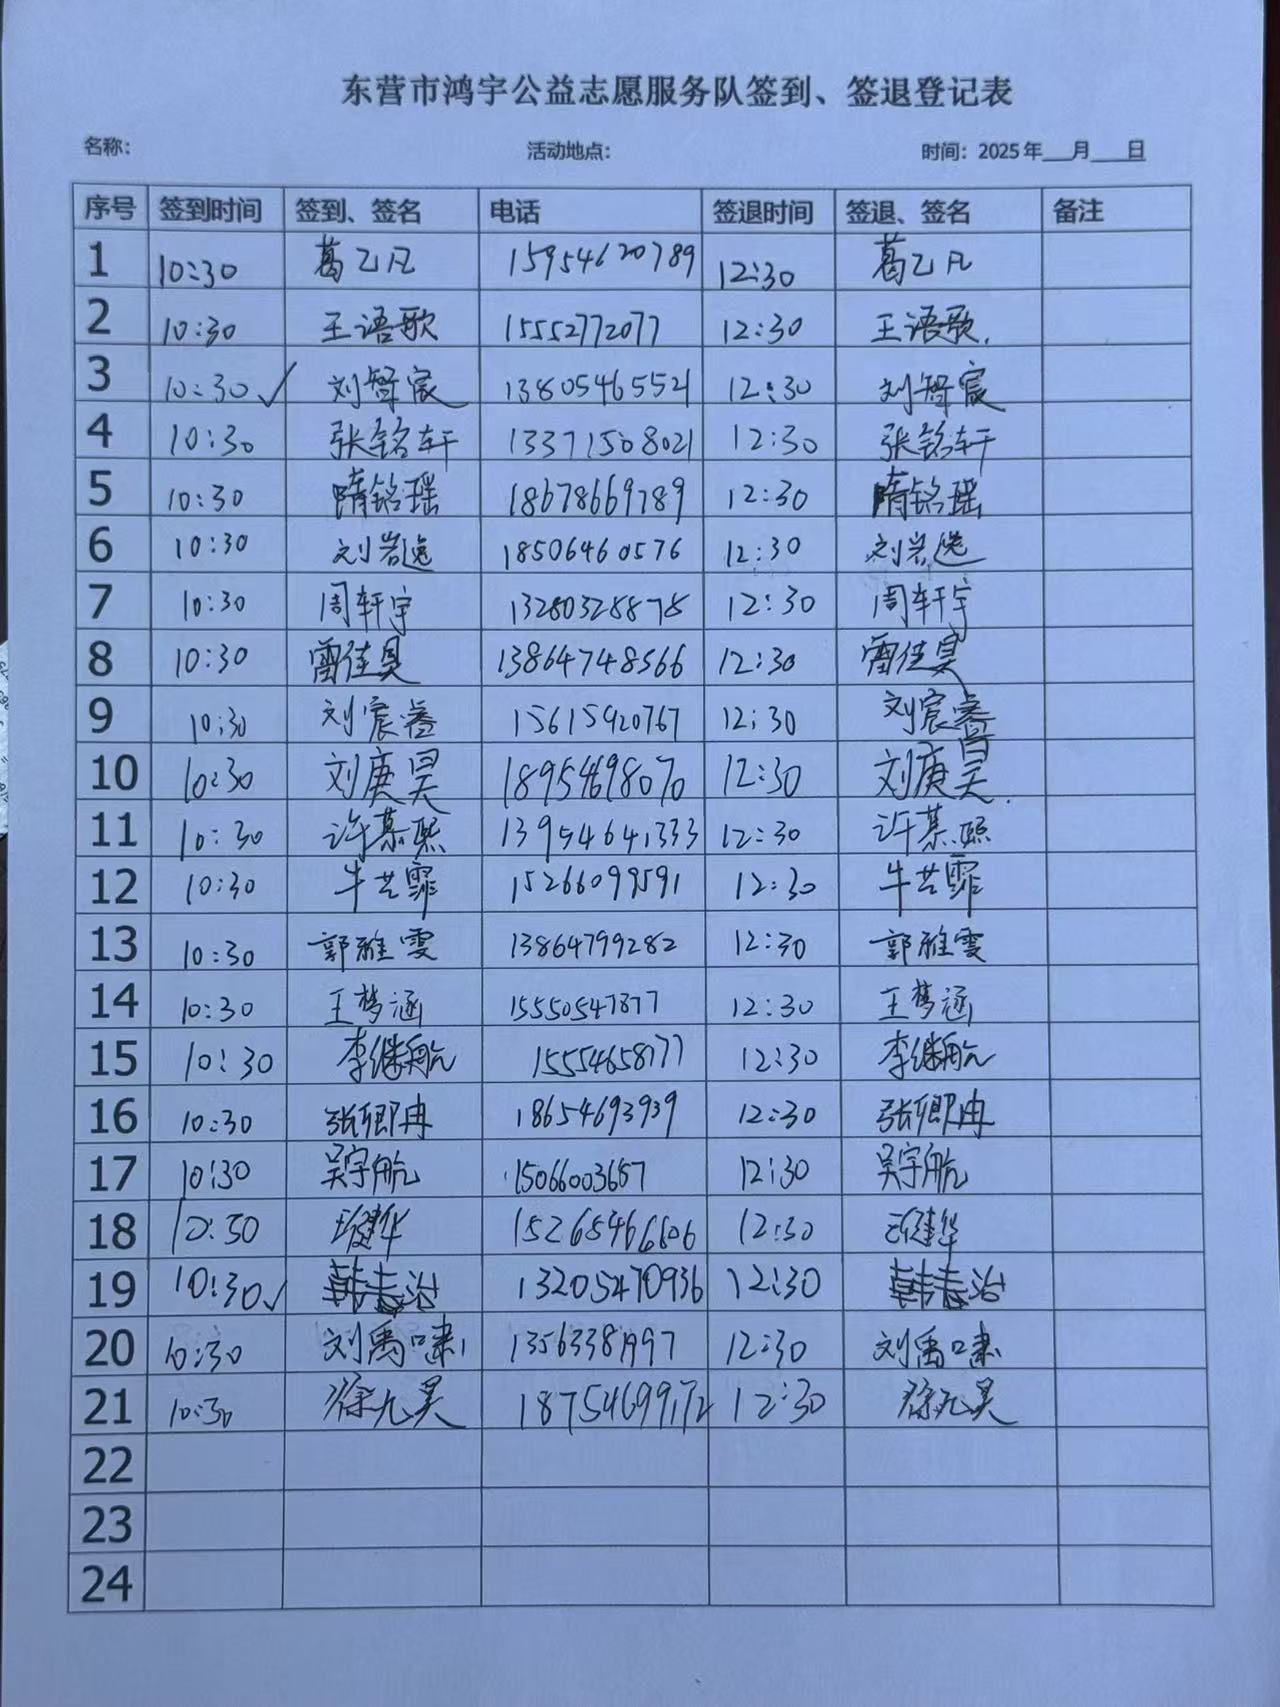 东营市鸿宇公益志愿服务队签到、签退登记表
名称: 活动地点: 时间: 2025年___月___日
序号 签到时间 签到、签名 电话 签退时间 签退、签名 备注
1 10:30 葛乙凡 15954620789 12:30 葛乙凡
2 10:30 王语歌 15552772077 12:30 王语歌.
3 10:30✓ 刘智宸 13805465521 12:30 刘智宸
4 10:30 张铭轩 13371508021 12:30 张铭轩
5 10:30 隋铭瑶 18678669789 12:30 隋铭瑶
6 10:30 刘岩逸 18506460576 12:30 刘岩逸
7 10:30 周轩宇 13280328878 12:30 周轩宇
8 10:30 雷佳昊 13864748566 12:30 雷佳昊
9 10:30 刘宸睿 15615920767 12:30 刘宸睿
10 10:30 刘庚昊 18954698070 12:30 刘庚昊
11 10:30 许慕熙 13954641333 12:30 许慕熙
12 10:30 牛艺霏 15266099591 12:30 牛艺霏
13 10:30 郭雅雯 13864799282 12:30 郭雅雯
14 10:30 王梦涵 15550547877 12:30 王梦涵
15 10:30 李继航 15554658177 12:30 李继航
16 10:30 张卿冉 18654693939 12:30 张卿冉
17 10:30 吴宇航 15066003657 12:30 吴宇航
18 10:30 健华 15265466606 12:30 健华
19 10:30✓ 韩春治 13205470936 12:30 韩春治
20 10:30 刘禹啸 13563381997 12:30 刘禹啸
21 10:30 徐九昊 18754699172 12:30 徐九昊
22
23
24